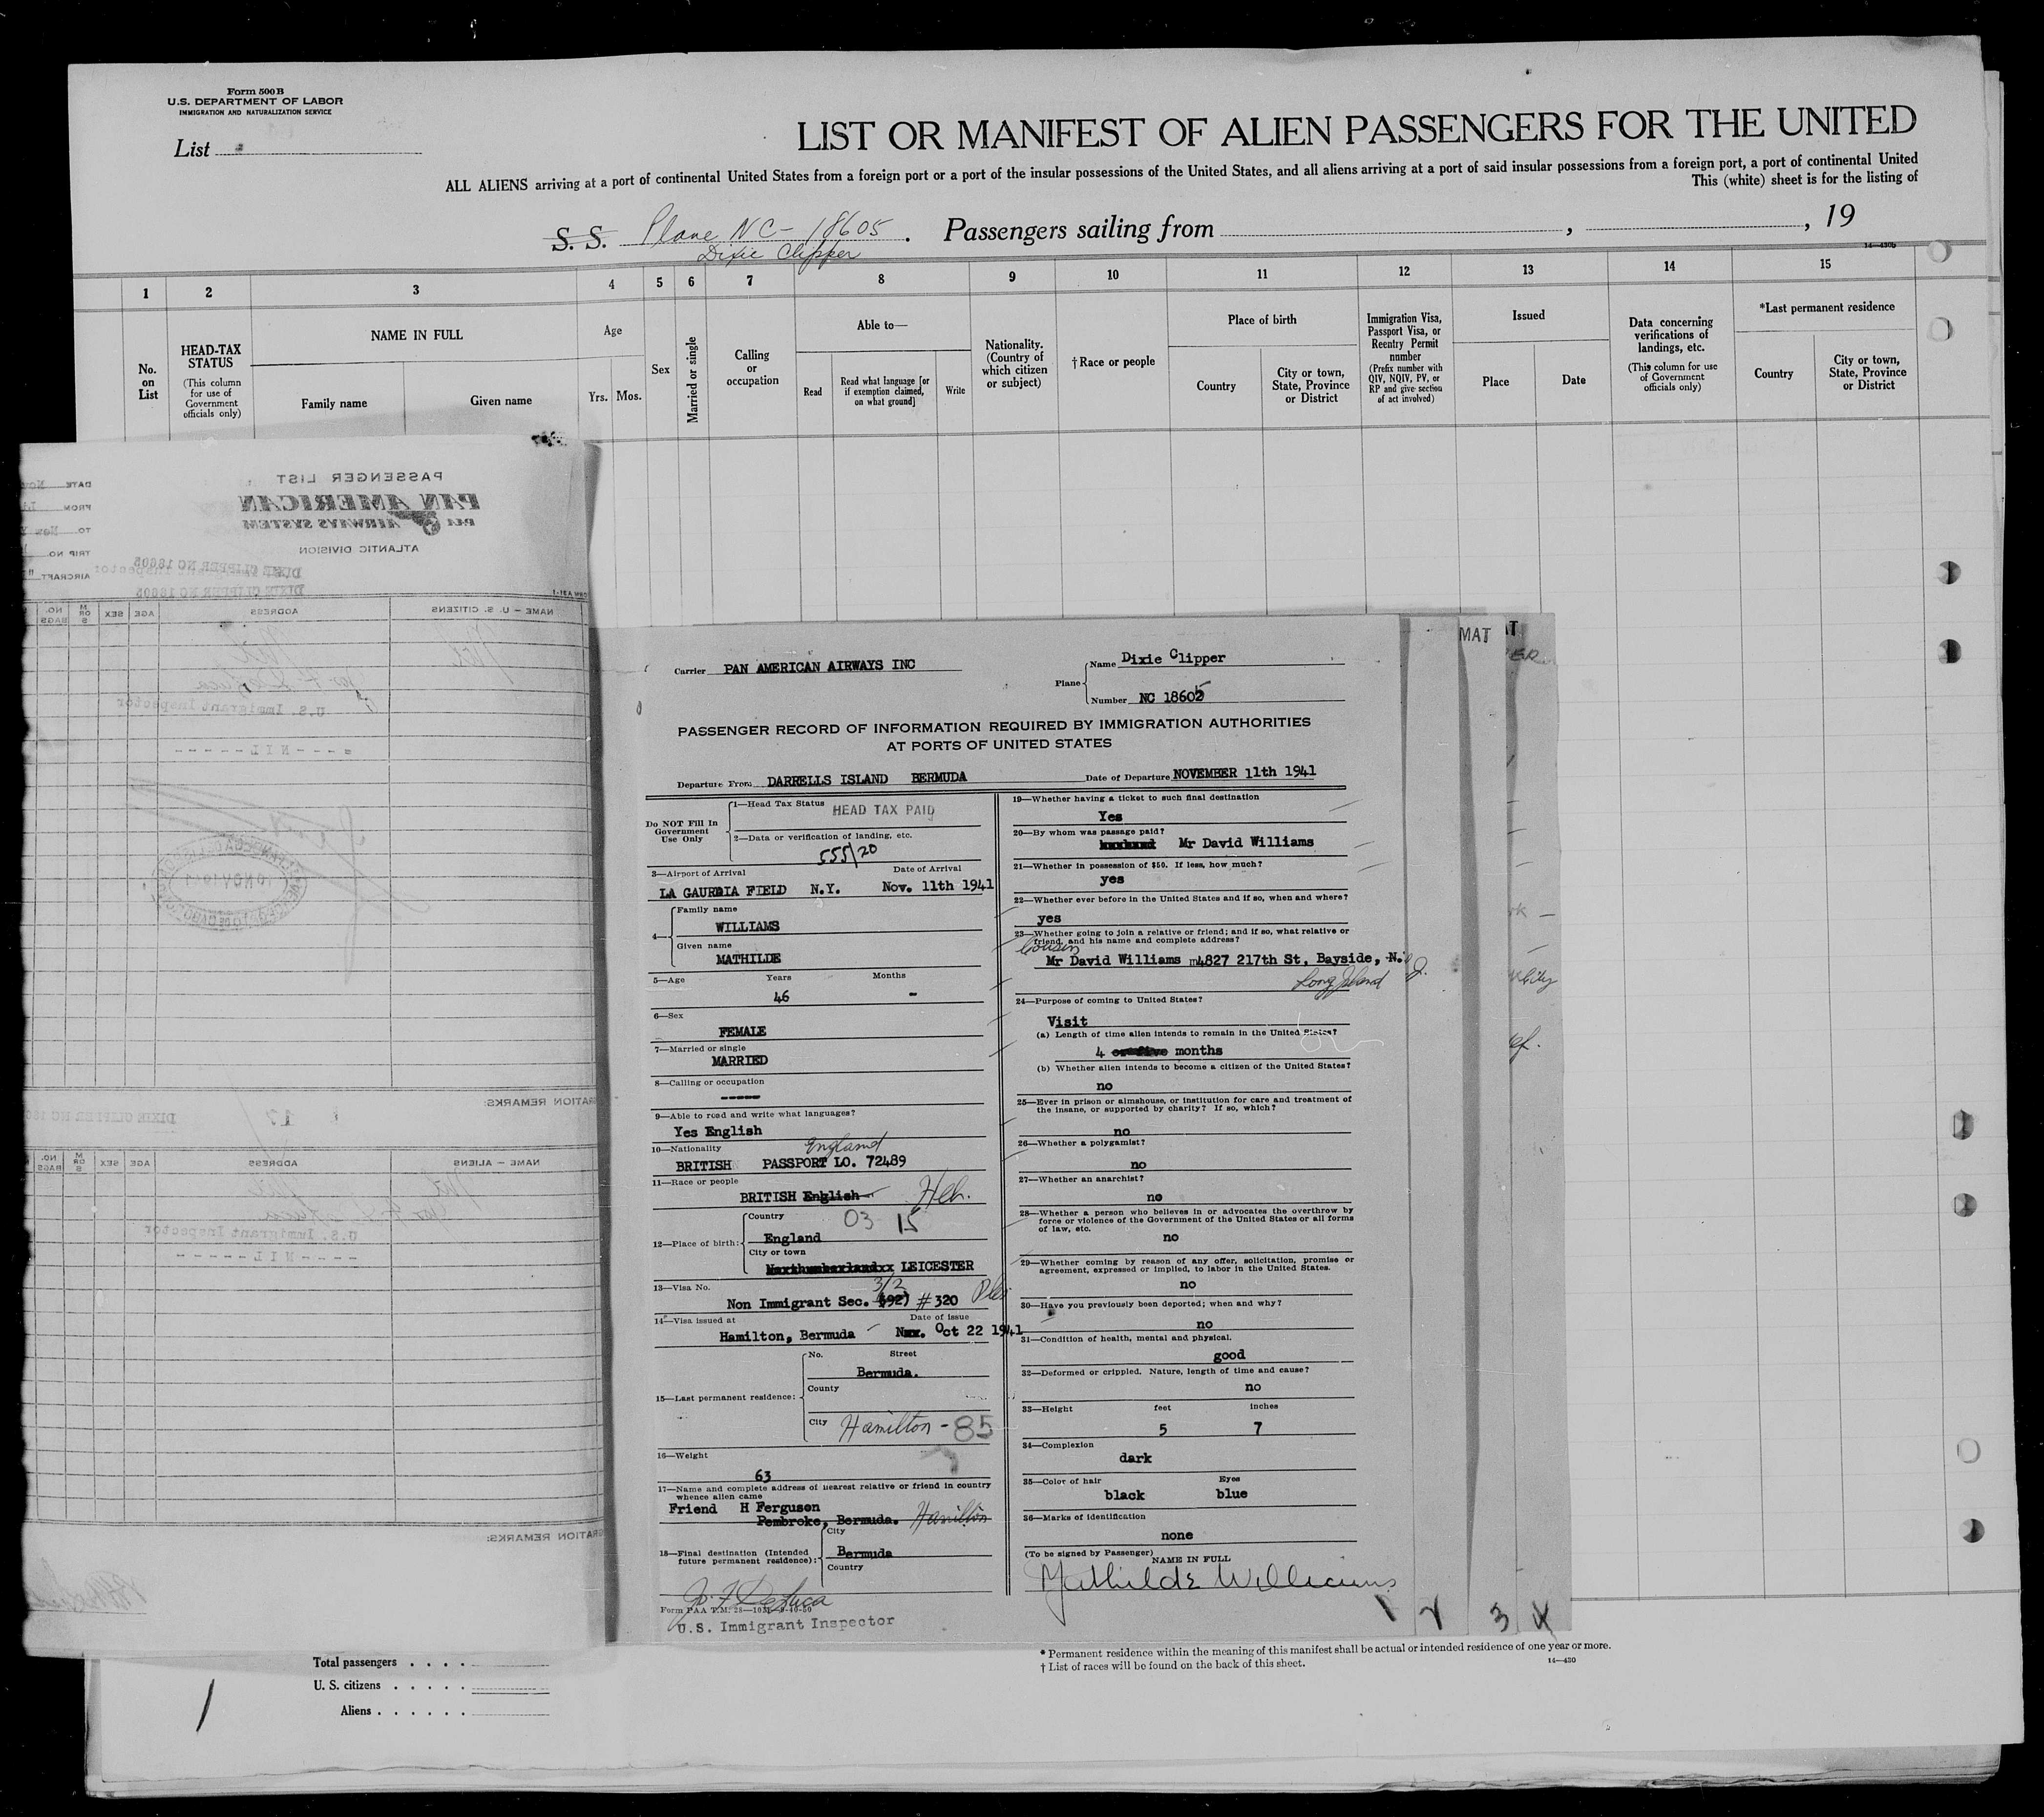 Form 500 B
U.S. DEPARTMENT OF LABOR
IMMIGRATION AND NATURALIZATION SERVICE
List
LIST OR MANIFEST OF ALIEN PASSENGERS FOR THE UNITED
ALL ALIENS arriving at a port of continental United States from a foreign port or a port of the insular possessions of the United States, and all aliens arriving at a port of said insular possessions from a foreign port, a port of continental United
This (white) sheet is for the listing of
S. S. Plane NC- 18605. Passengers sailing from , , 19
Dixie Clipper
14—430b
1 2 3 4 5 6 7 8 9 10 11 12 13 14 15
No. on List
HEAD-TAX STATUS
(This column for use of Government officials only)
NAME IN FULL
Family name
Given name
Age
Yrs. Mos.
Sex
Married or single
Calling or occupation
Able to—
Read
Read what language [or if exemption claimed, on what ground]
Write
Nationality. (Country of which citizen or subject)
†Race or people
Place of birth
Country
City or town, State, Province or District
Immigration Visa, Passport Visa, or Reentry Permit number
(Prefix number with QIV, NQIV, PV, or RP and give section of act involved)
Issued
Place
Date
Data concerning verifications of landings, etc.
(This column for use of Government officials only)
*Last permanent residence
Country
City or town, State, Province or District
PASSENGER LIST
PAN AMERICAN
PAA AIRWAYS SYSTEM
ATLANTIC DIVISION
DATE
FROM
TO
TRIP NO.
AIRCRAFT
DIXIE CLIPPER NC 18605
DIXIE CLIPPER NC 18605
NAME — U. S. CITIZENS
ADDRESS
AGE
SEX
M OR S
NO. BAGS
U.S. Immigrant Inspector
- - - - N I L - - - - -
RATION REMARKS:
DIXIE CLIPPER NC 186
NAME — ALIENS
ADDRESS
AGE
SEX
M OR S
NO. BAGS
U.S. Immigrant Inspector
- - - - N I L - - - - -
RATION REMARKS:
MAT
Carrier PAN AMERICAN AIRWAYS INC
Plane
Name Dixie Clipper
Number NC 18605
PASSENGER RECORD OF INFORMATION REQUIRED BY IMMIGRATION AUTHORITIES
AT PORTS OF UNITED STATES
Departure From DARRELLS ISLAND BERMUDA
Date of Departure NOVEMBER 11th 1941
Do NOT Fill In Government Use Only
1—Head Tax Status HEAD TAX PAID
2—Data or verification of landing, etc.
555/20
3—Airport of Arrival Date of Arrival
LA GAURDIA FIELD N.Y. Nov. 11th 1941
4—
Family name
WILLIAMS
Given name
MATHILDE
5—Age Years Months
46 -
6—Sex
FEMALE
7—Married or single
MARRIED
8—Calling or occupation
-----
9—Able to read and write what languages?
Yes English
10—Nationality England
BRITISH PASSPORT LO. 72489
11—Race or people
BRITISH English Heb.
12—Place of birth:
Country 03 15
England
City or town
LEICESTER
13—Visa No. 3/2
Non Immigrant Sec. #320
14—Visa issued at Date of issue
Hamilton, Bermuda Oct 22 1941
15—Last permanent residence:
No. Street
Bermuda.
County
City Hamilton - 85
16—Weight
63
17—Name and complete address of nearest relative or friend in country
whence alien came
Friend H Ferguson
Pembroke, Bermuda. Hamilton
18—Final destination (Intended future permanent residence):
City
Bermuda
Country
Form PAA T.M. 28—
U.S. Immigrant Inspector
19—Whether having a ticket to such final destination
Yes
20—By whom was passage paid?
Mr David Williams
21—Whether in possession of $50. If less, how much?
yes
22—Whether ever before in the United States and if so, when and where?
yes
23—Whether going to join a relative or friend; and if so, what relative or
friend, and his name and complete address?
Cousin
Mr David Williams 4827 217th St, Bayside, N.
Long Island
24—Purpose of coming to United States?
Visit
(a) Length of time alien intends to remain in the United States?
4 or five months
(b) Whether alien intends to become a citizen of the United States?
no
25—Ever in prison or almshouse, or institution for care and treatment of
the insane, or supported by charity? If so, which?
no
26—Whether a polygamist?
no
27—Whether an anarchist?
no
28—Whether a person who believes in or advocates the overthrow by
force or violence of the Government of the United States or all forms
of law, etc.
no
29—Whether coming by reason of any offer, solicitation, promise or
agreement, expressed or implied, to labor in the United States.
no
30—Have you previously been deported; when and why?
no
31—Condition of health, mental and physical.
good
32—Deformed or crippled. Nature, length of time and cause?
no
33—Height feet inches
5 7
34—Complexion
dark
35—Color of hair Eyes
black blue
36—Marks of identification
none
(To be signed by Passenger)
NAME IN FULL
Mathilde Williams
1 2 3 4
* Permanent residence within the meaning of this manifest shall be actual or intended residence of one year or more.
† List of races will be found on the back of this sheet.
14—430
Total passengers . . . .
U. S. citizens . . . . .
Aliens . . . . . .
1